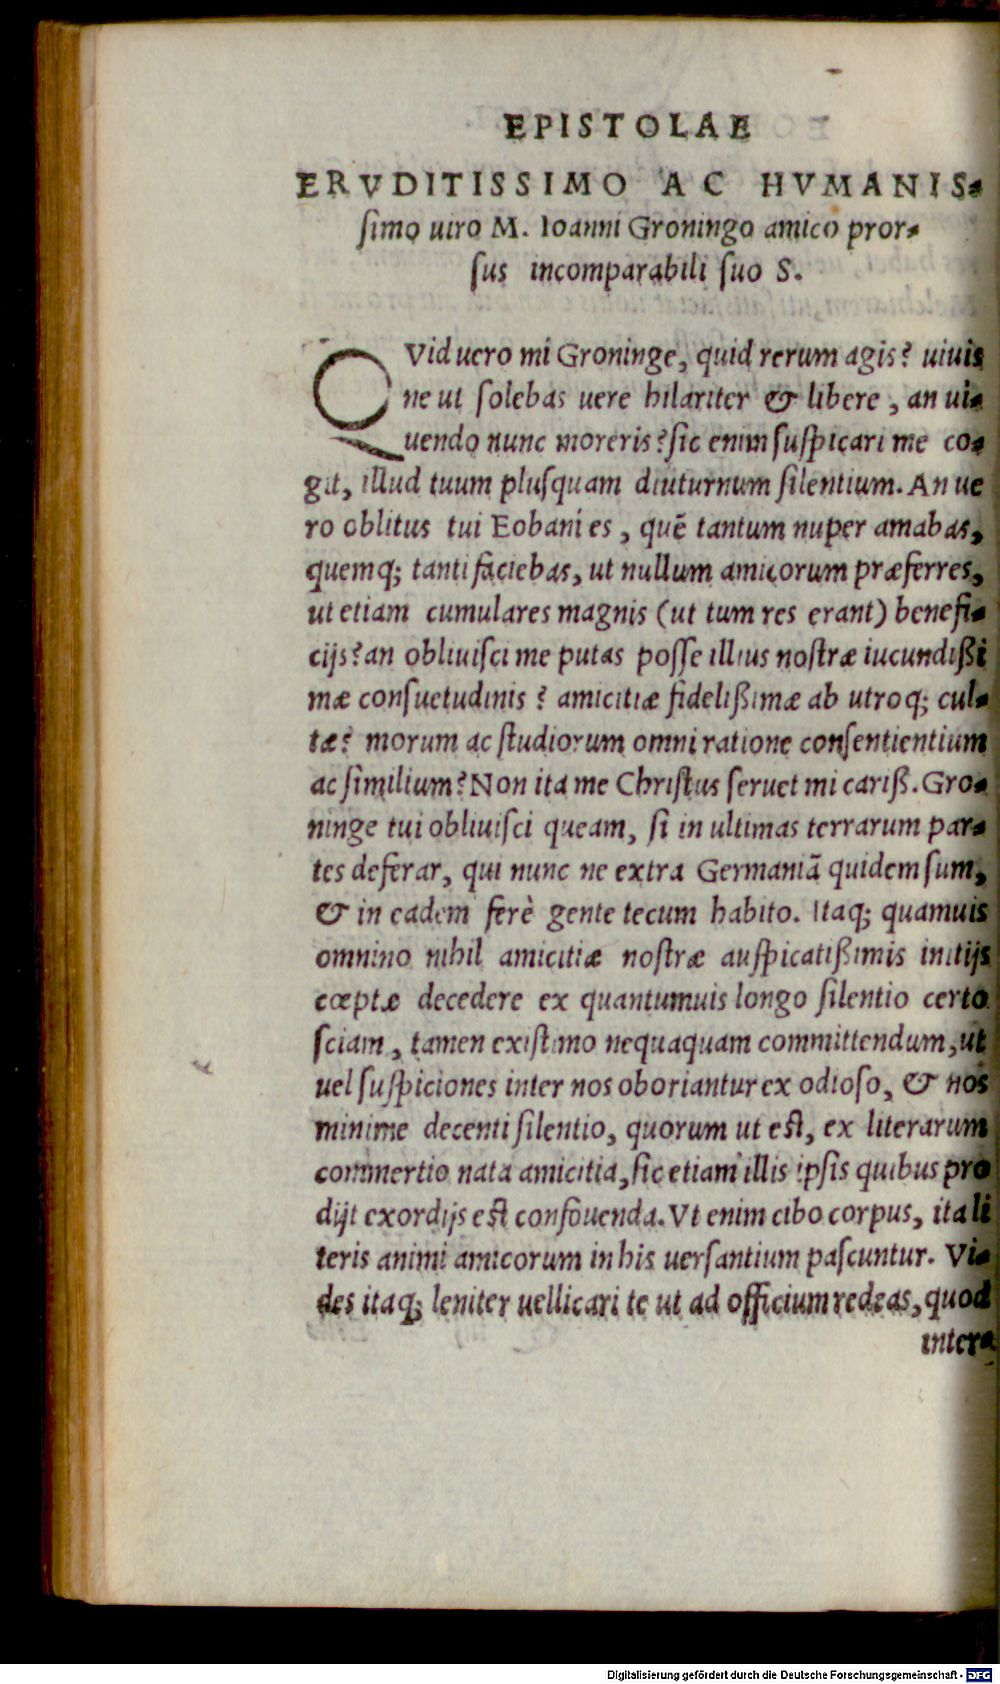 EPISTOLAE
ERVDITISSIMO AC HVMANIS-
ſimo uiro M. Ioanni Groningo amico pror-
ſus incomparabili ſuo S.
QVid uero mi Groninge, quid rerum agis? uiuis
ne ut ſolebas uere hilariter & libere, an ui-
uendo nunc moreris? ſic enim ſuſpicari me co-
git, illud tuum pluſquam diuturnum ſilentium. An ue
ro oblitus tui Eobani es, quē tantum nuper amabas,
quemq; tanti faciebas, ut nullum amicorum præferres,
ut etiam cumulares magnis (ut tum res erant) benefi-
cijs? an obliuiſci me putas poſſe illius noſtræ iucundißi
mæ conſuetudinis? amicitiæ fidelißimæ ab utroq; cul-
tæ? morum ac ſtudiorum omni ratione conſentientium
ac ſimilium? Non ita me Chriſtus ſeruet mi cariß. Gro-
ninge tui obliuiſci queam, ſi in ultimas terrarum par-
tes deferar, qui nunc ne extra Germaniā quidem ſum,
& in eadem ferè gente tecum habito. Itaq; quamuis
omnino nihil amicitiæ noſtræ auſpicatißimis initijs
cœptæ decedere ex quantumuis longo ſilentio certo
ſciam, tamen exiſtimo nequaquam committendum, ut
uel ſuſpiciones inter nos oboriantur ex odioſo, & nos
minime decenti ſilentio, quorum ut eſt, ex literarum
commertio nata amicitia, ſic etiam illis ipſis quibus pro
dijt exordijs eſt confouenda. Vt enim cibo corpus, ita li
teris animi amicorum in his uerſantium paſcuntur. Vi-
des itaq; leniter uellicari te ut ad officium redeas, quod
inter-
Digitalisierung gefördert durch die Deutsche Forschungsgemeinschaft - DFG